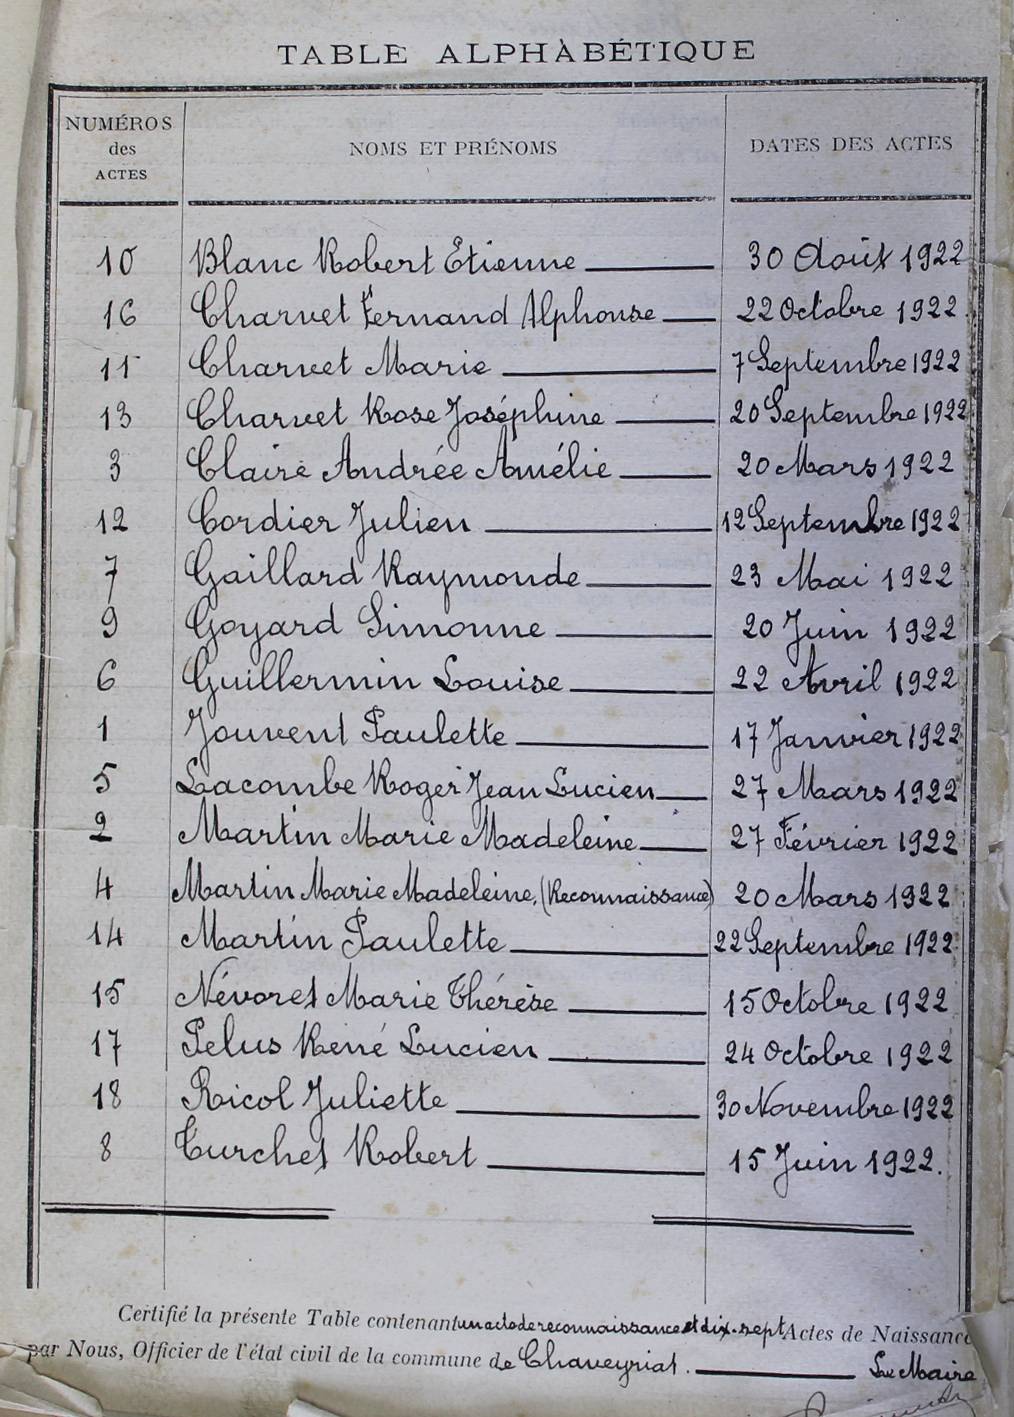 TABLE ALPHABÉTIQUE
NUMÉROS des ACTES NOMS ET PRÉNOMS DATES DES ACTES
10 Blanc Robert Etienne 30 Août 1922
16 Charvet Fernand Alphonse 22 Octobre 1922
11 Charvet Marie 7 Septembre 1922
13 Charvet Rose Joséphine 20 Septembre 1922
3 Claire Andrée Amélie 20 Mars 1922
12 Cordier Julien 12 Septembre 1922
7 Gaillard Raymonde 23 Mai 1922
9 Goyard Simonne 20 Juin 1922
6 Guillermin Louise 22 Avril 1922
1 Jouvent Paulette 17 Janvier 1922
5 Lacombe Roger Jean Lucien 27 Mars 1922
2 Martin Marie Madeleine 27 Février 1922
4 Martin Marie Madeleine, (Reconnaissance) 20 Mars 1922
14 Martin Paulette 22 Septembre 1922
15 Névoret Marie Thérèse 15 Octobre 1922
17 Pelus René Lucien 24 Octobre 1922
18 Ricol Juliette 30 Novembre 1922
8 Turchet Robert 15 Juin 1922.
Certifié la présente Table contenant un acte de reconnaissance et dix-sept Actes de Naissance
par Nous, Officier de l'état civil de la commune de Chaveyriat. Le Maire